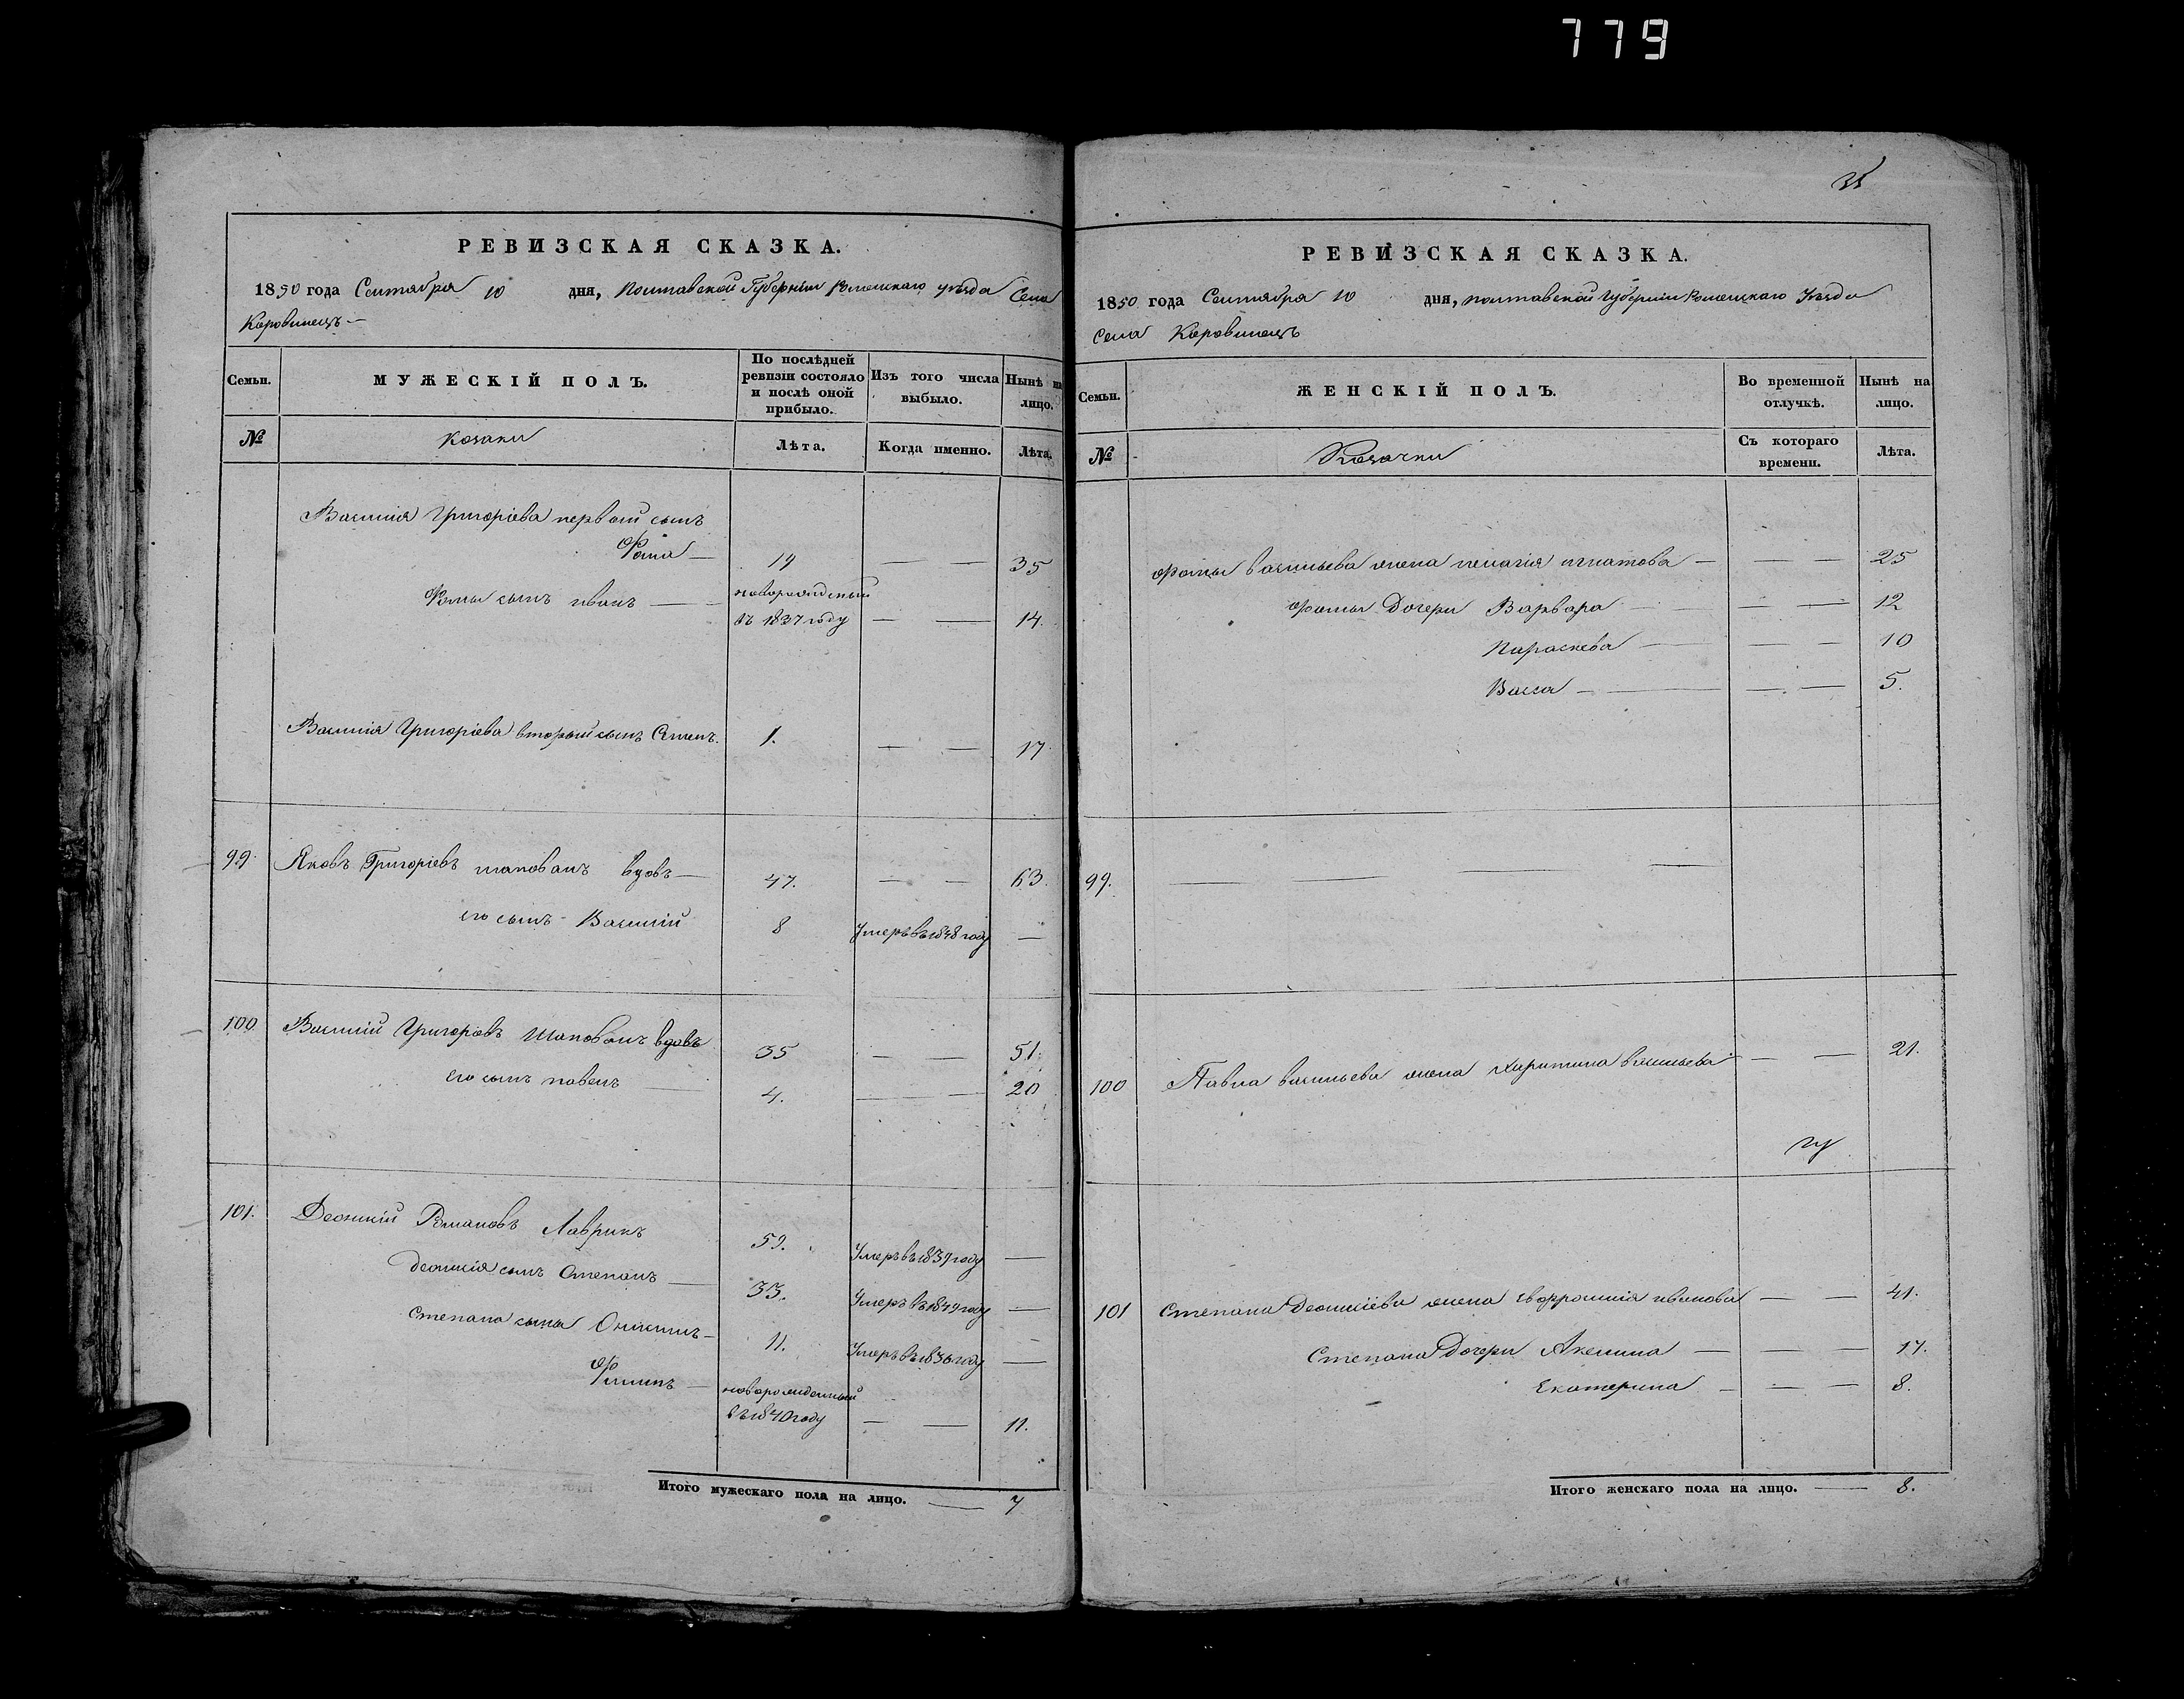 779
35
РЕВИЗСКАЯ СКАЗКА.
1850 года Сентября 10 дня, Полтавской Губерніи Роменскаго уѣзда Села
Коровинецъ
Семьи. МУЖЕСКІЙ ПОЛЪ. По послѣдней ревизіи состояло и послѣ оной прибыло. Изъ того числа выбыло. Нынѣ на лицо.
№ Козаки Лѣта. Когда именно. Лѣта.
Василія Григоріева первый сынъ
Фома — 19 — — 35
Фомы сынъ иванъ — новорожденый
въ 1837 году — — 14.
Василія Григоріева вторый сынъ Семенъ. 1. — — 17
99. Яковъ Григоріевъ шаповалъ вдовъ — 47. — — 63.
его сынъ Василій 8 Умеръ въ 1848 году —
100. Василій Григорьевъ Шаповалъ вдовъ 35 — — 51.
Его сынъ павелъ — 4. — — 20
101. Леонтій Романовъ Лаврикъ 59. Умеръ въ 1839 году —
Леонтія сынъ Степанъ — 33. Умеръ въ 1849 году —
Степана сыны Онисимъ — 11. Умеръ въ 1836 году —
Филипъ — новорожденный
въ 1840 году — — 11.
Итого мужескаго пола на лицо. — 7
РЕВИЗСКАЯ СКАЗКА.
1850 года Сентября 10 дня, полтавской Губерніи Роменскаго Уѣзда
Села Коровинецъ
Семьи. ЖЕНСКІЙ ПОЛЪ. Во временной отлучкѣ. Нынѣ на лицо.
№ Козачки Съ котораго времени. Лѣта.
Фомы васильева жена пелагія игнатова — — — 25
Фомы Дочери Варвара — — — 12
Параскева — — — 10
Васса — — — 5.
99. — — — —
100 Павла васильева жена Харитина васильева — — 21.
101 Степана Леонтіева жена евфросинія иванова — — 41.
Степана Дочери Акилина — — — 17.
Екатерина — — — 8.
Итого женскаго пола на лицо. — 8.